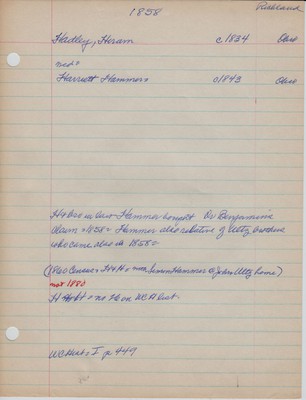 Richland
1858
Hadley, Hiram c1834 Ohio
md=
Harriett Hammer= c1843 Ohio
H & Bro in law - Hammer bought Dr Benjamin's
claim = 1858 = Hammer also relative of Utz
who came also in 1858=
(1860 Census = H & H = Hammer @ John Utz home)
not 1880
H = no Hs on WCH Dist.
WCHist = I p 449